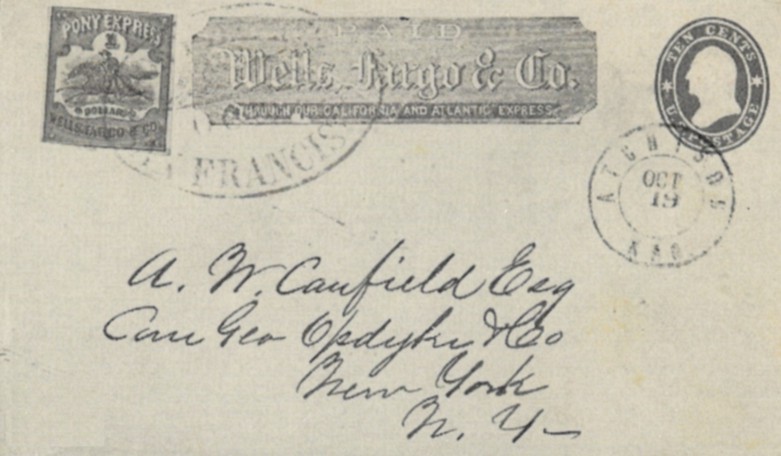 PONY EXPRESS
2
DOLLARS
WELLS, FARGO & CO.
PAID
Wells, Fargo & Co.
THROUGH OUR CALIFORNIA AND ATLANTIC EXPRESS.
TEN CENTS
U.S. POSTAGE
SAN FRANCISCO
ATCHISON
OCT
19
KAS.
A. W. Canfield Esq
Care Geo Opdyke & Co
New York
N. Y-